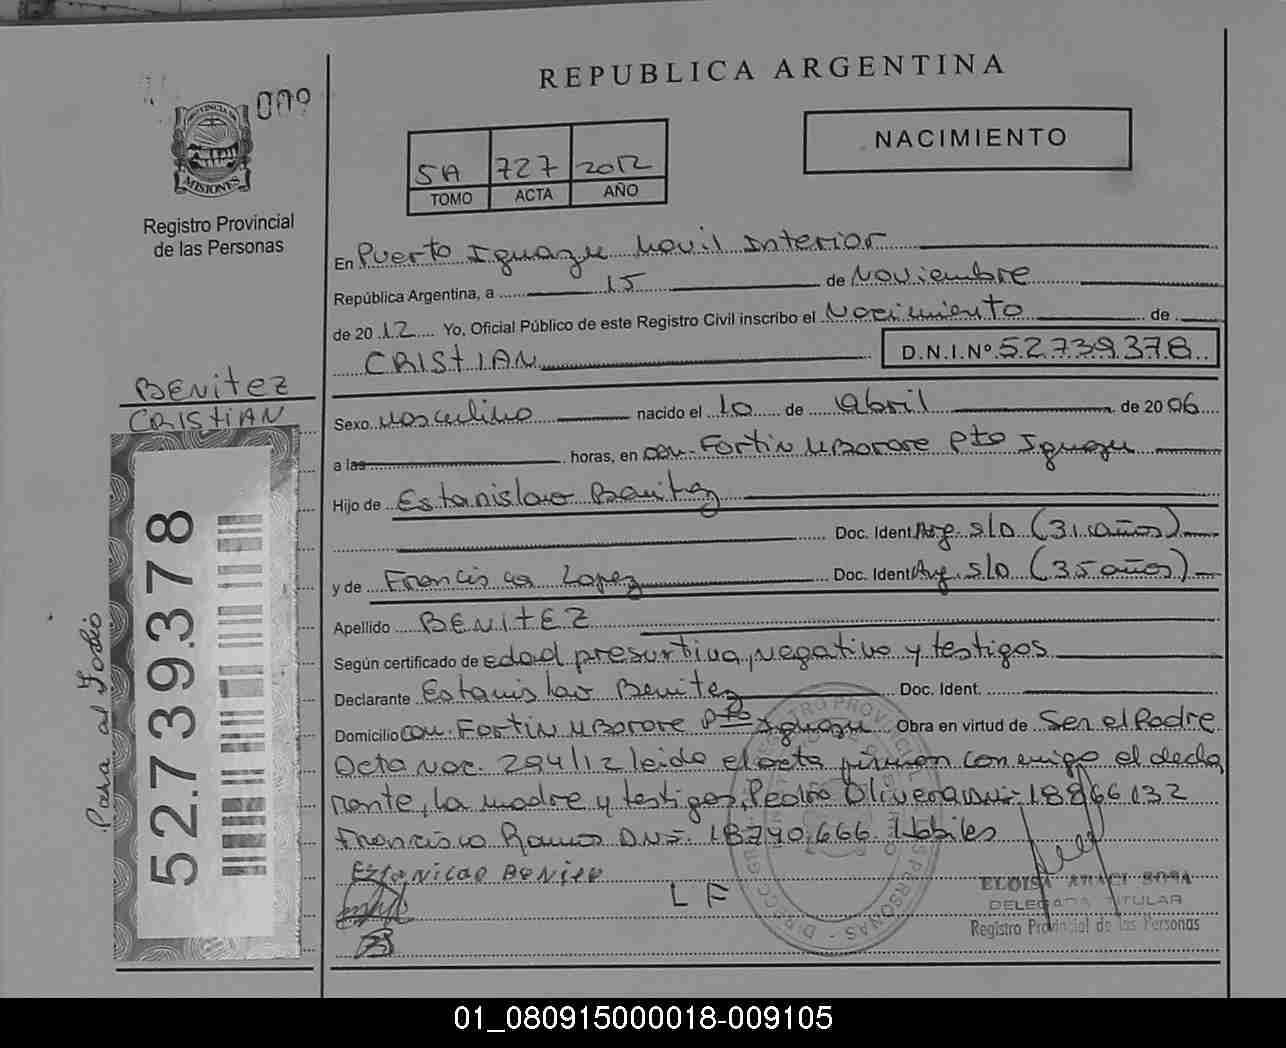 REPUBLICA ARGENTINA
009
PROVINCIA DE
MISIONES
Registro Provincial
de las Personas
NACIMIENTO
5A 727 2012
TOMO ACTA AÑO
En Puerto Iguazu Movil Interior
República Argentina, a 15 de Noviembre
de 2012 Yo, Oficial Público de este Registro Civil inscribo el Nacimiento de
CRISTIAN D.N.I.Nº 52.739.378
BENITEZ
CRISTIAN
Sexo Masculino nacido el 10 de Abril de 2006
a las horas, en com. Fortin Mborore Pto Iguazu
Hijo de Estanislao Benitez
Doc. Ident. Arg. s/D (31 años)
y de Francisca Lopez Doc. Ident. Arg. s/D (35 años)
Apellido BENITEZ
Según certificado de edad presuntiva, negativo y testigos
Declarante Estanislao Benitez Doc. Ident.
Domicilio com. Fortin Mborore Pto Iguazu Obra en virtud de Ser el Padre
Acta nac. 294/12 leida el acta firman conmigo el decla
rante, la madre y testigos, Pedro Olivera DNI: 18866132
Francisco Ramos DNI: 18790.666 Habiles
L F
ELOISA ARACI SOSA
DELEGADA TITULAR
Registro Provincial de las Personas
Para al Folio
52.739.378
01_080915000018-009105